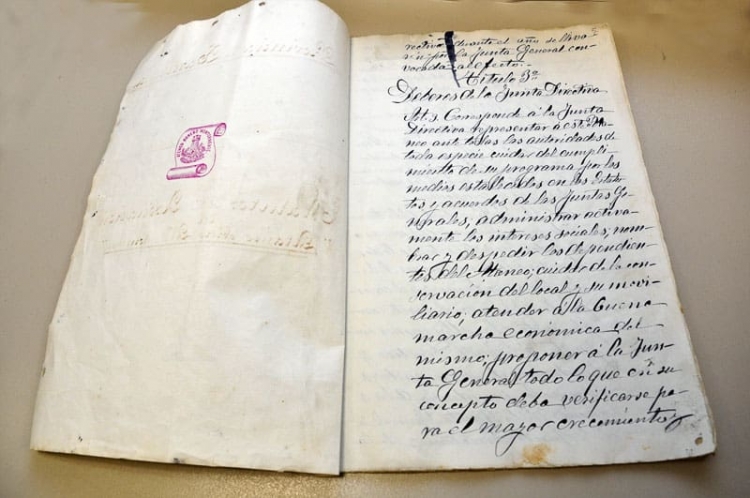 rectiva durante el año se lleva
rá por la Junta General con-
vocada al efecto.
Titulo 3º
Deberes de la Junta Directiva
Art. 9. Corresponde á la Junta
Directiva representar á este Ate-
neo ante todas las autoridades de
toda especie cuidar del cumpli-
miento de su programa por los
medios establecidos en los Estatu-
tos y acuerdos de las Juntas Ge-
nerales; administrar activa-
mente los intereses sociales; nom-
brar y despedir los dependien-
tes del Ateneo; cuidar de la con-
servación del local y su movi-
liario; atender á la buena
marcha economica del
mismo; proponer á la Jun-
ta General todo lo que en su
concepto deba verificarse pa-
ra el mayor crecimiento y